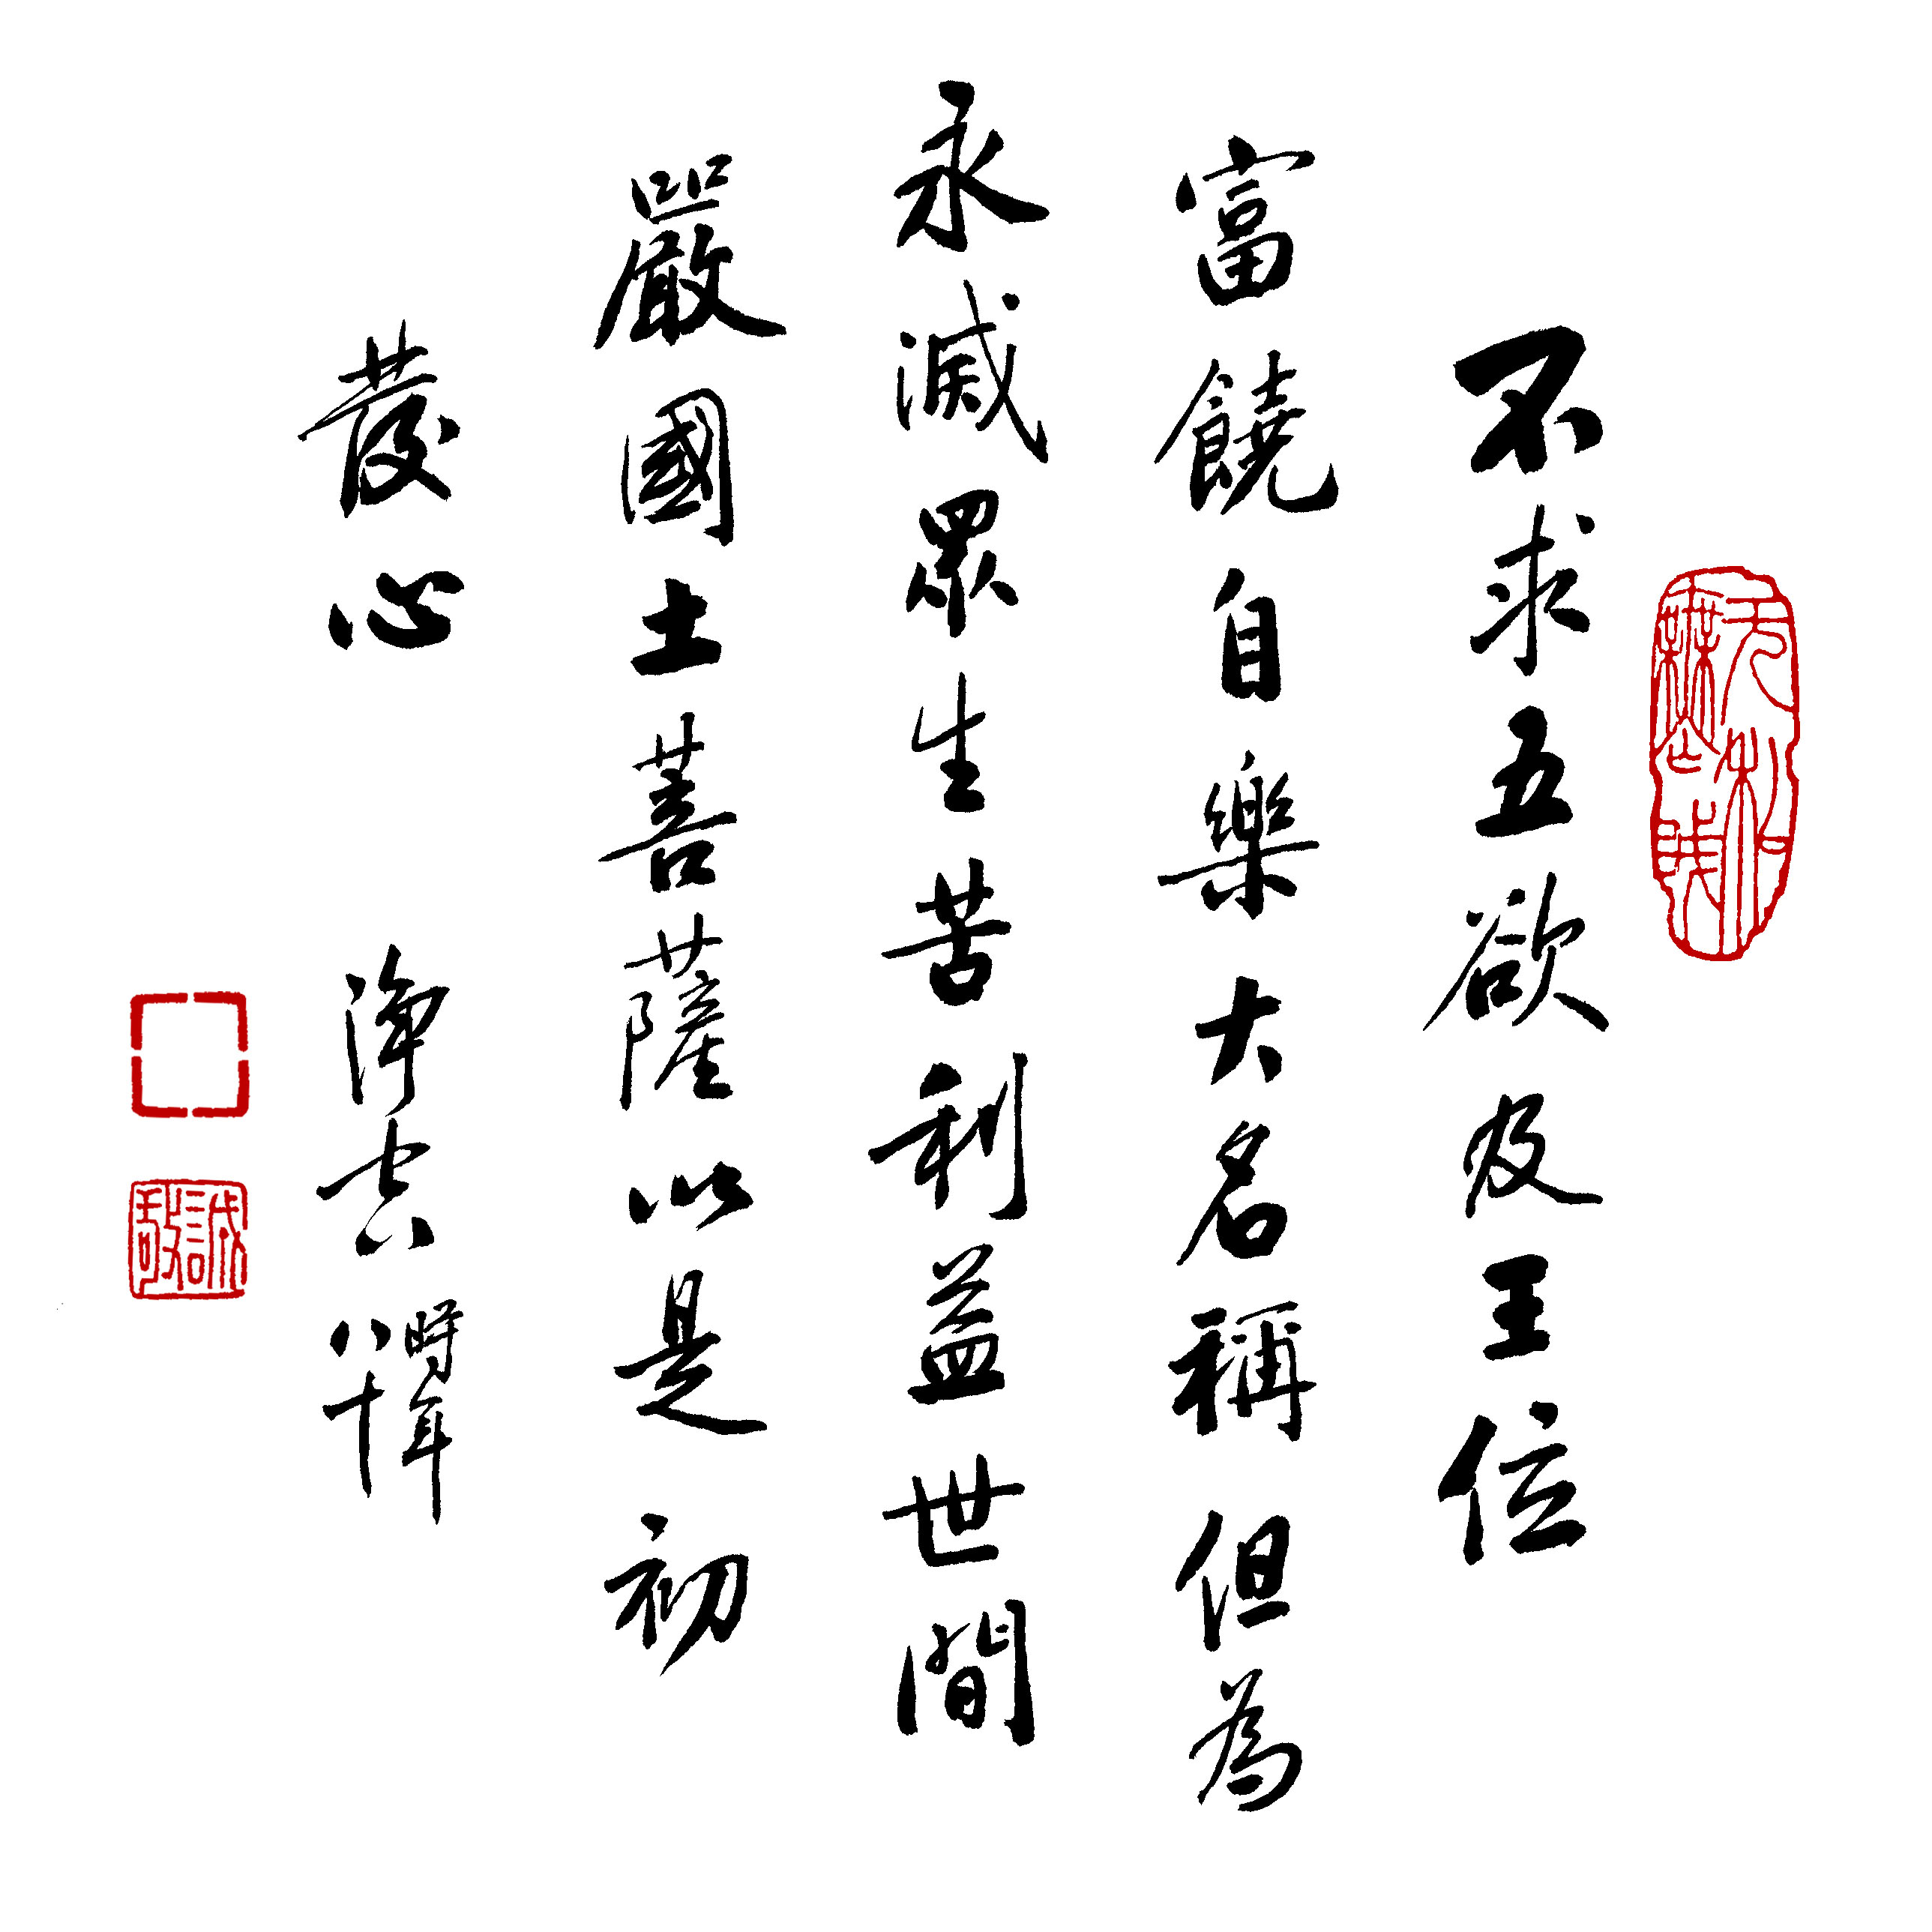 不求五欲及王位
富饒自樂大名稱但為
永滅眾生苦利益世間
嚴國土菩薩以是初
發心
淨空時年八十